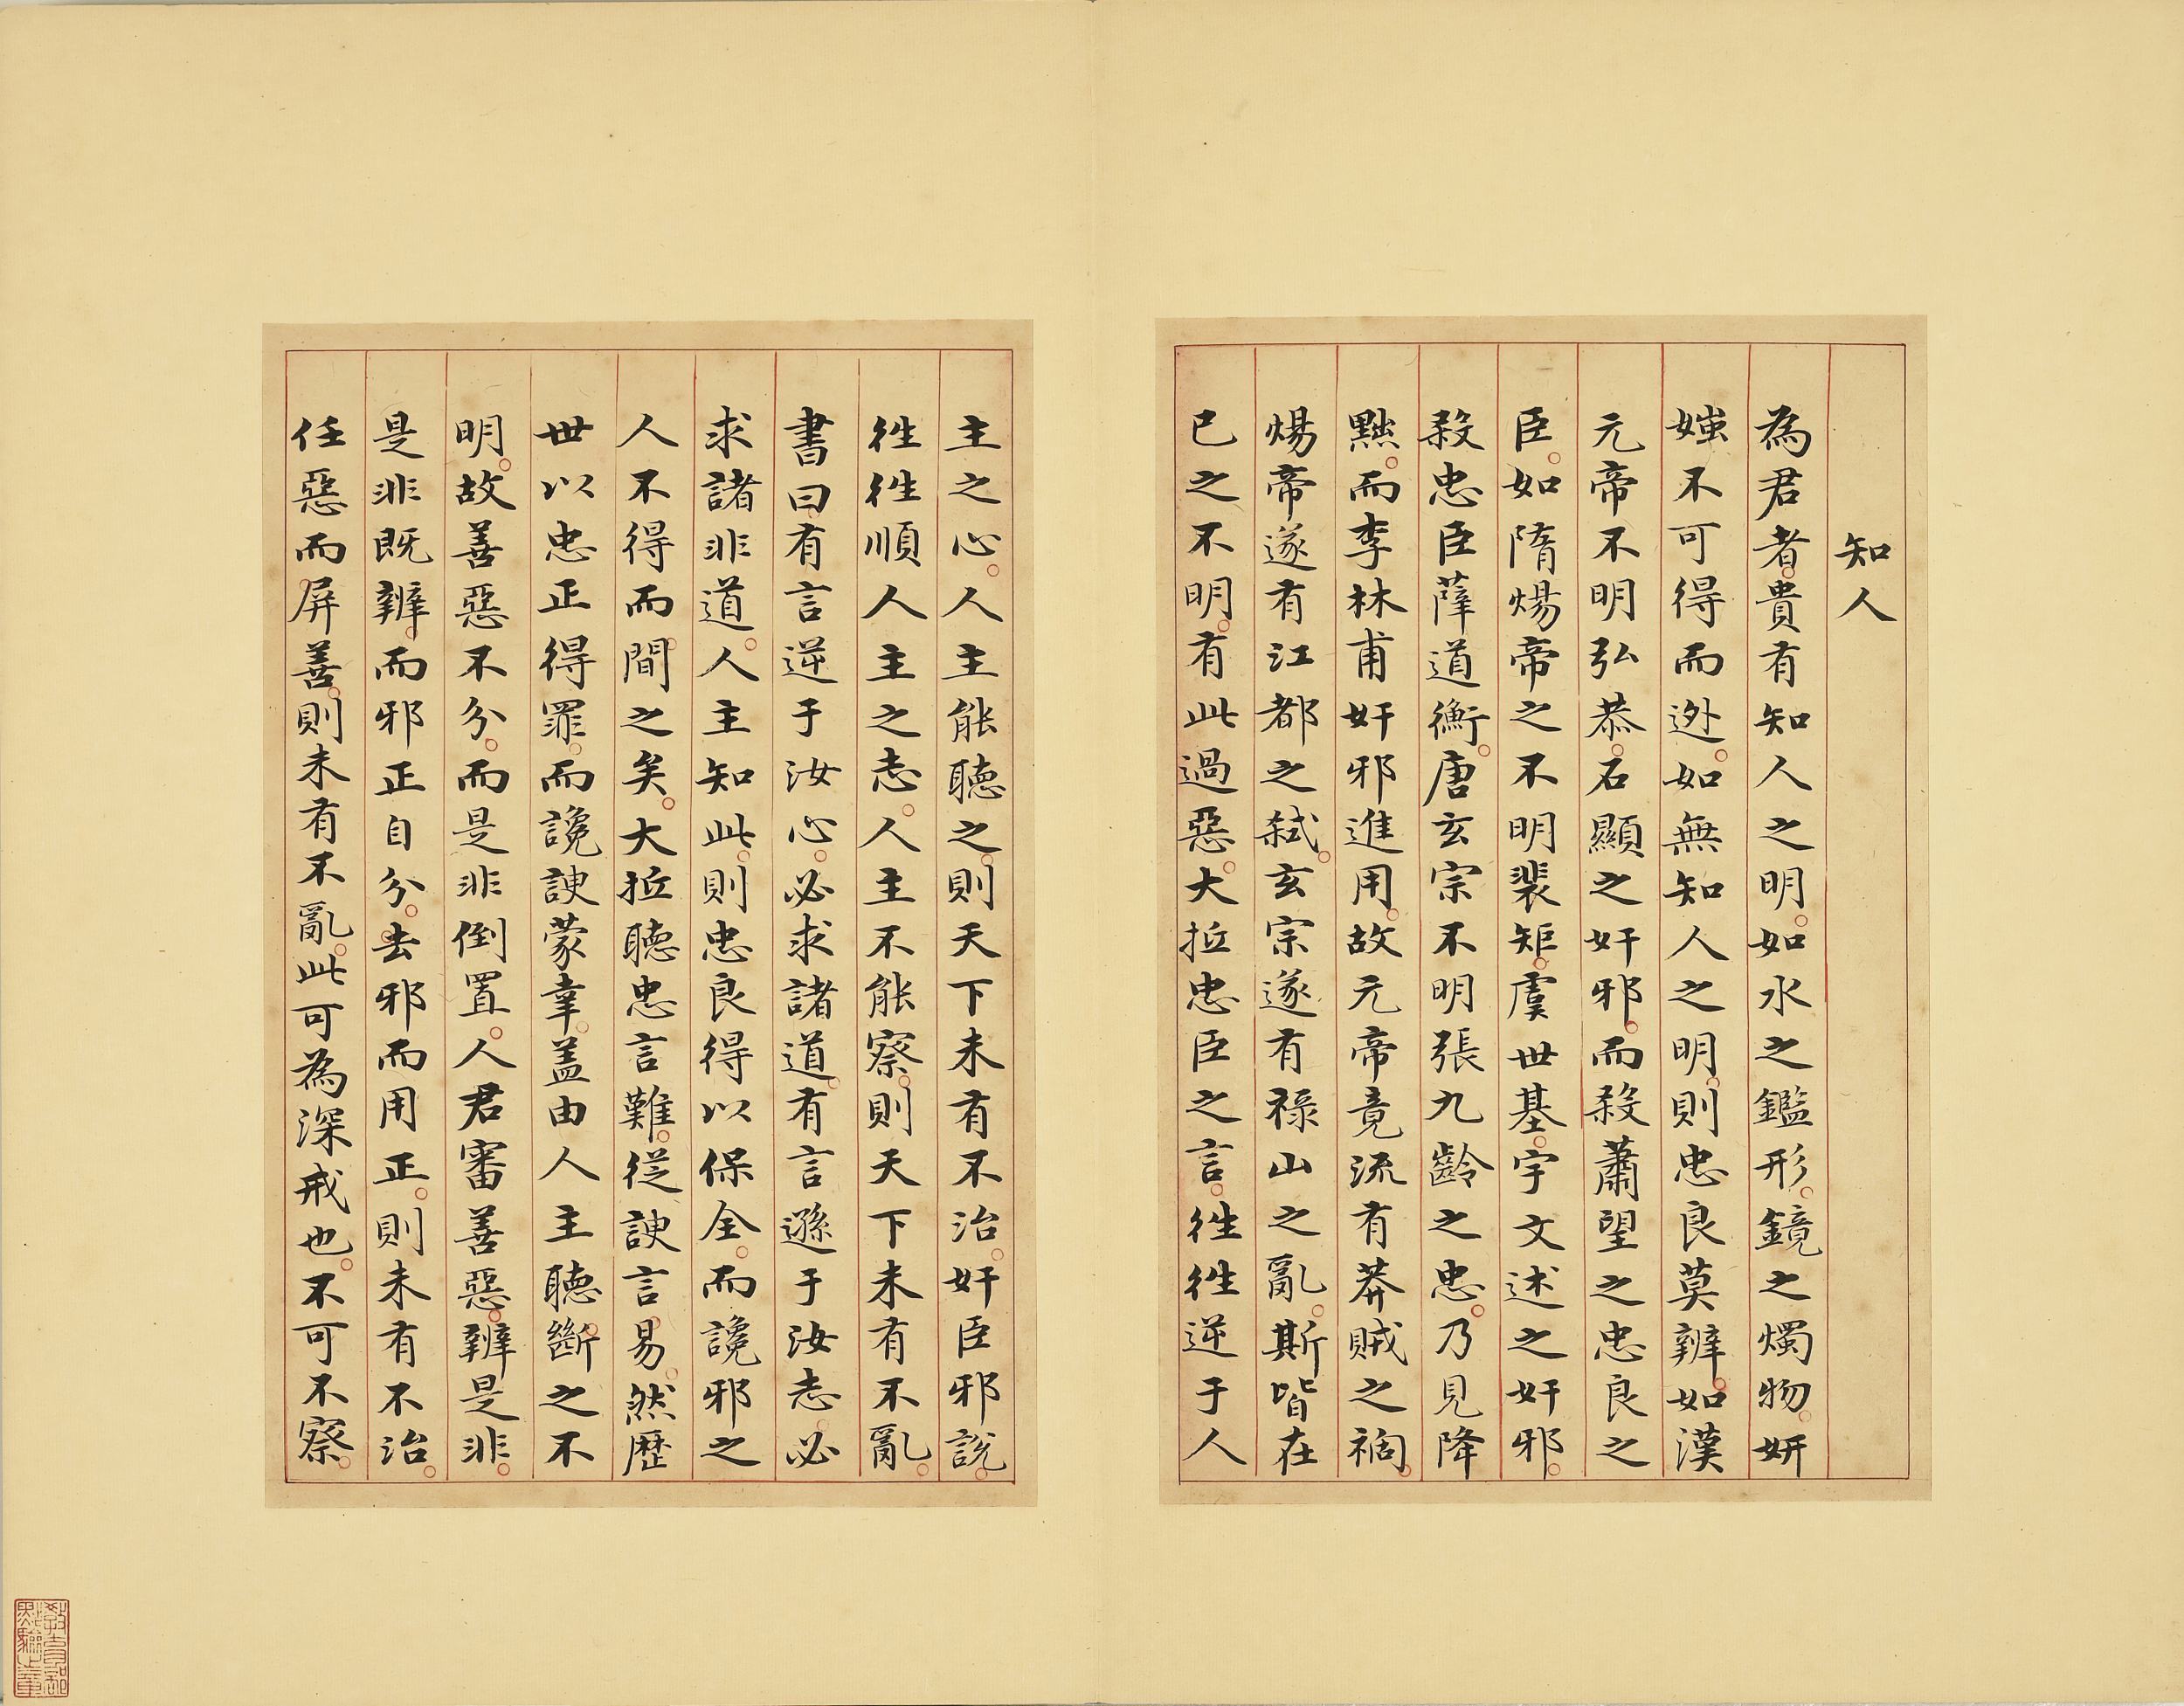 知人
為君者貴有知人之明如水之鑑形鏡之燭物妍
媸不可得而逃如無知人之明則忠良莫辨如漢
元帝不明弘恭石顯之奸邪而殺蕭望之忠良之
臣如隋煬帝之不明裴矩虞世基宇文述之奸邪
殺忠臣薛道衡唐玄宗不明張九齡之忠乃見降
黜而李林甫奸邪進用故元帝竟流有莽賊之禍
煬帝遂有江都之弒玄宗遂有祿山之亂斯皆在
已之不明有此過惡大抵忠臣之言徃徃逆于人
主之心人主能聽之則天下未有不治奸臣邪說
徃徃順人主之志人主不能察則天下未有不亂
書曰有言逆于汝心必求諸道有言遜于汝志必
求諸非道人主知此則忠良得以保全而讒邪之
人不得而間之矣大抵聽忠言難從諛言易然歷
世以忠正得罪而讒諛蒙幸盖由人主聽斷之不
明故善惡不分而是非倒置人君審善惡辨是非
是非既辨而邪正自分去邪而用正則未有不治
任惡而屏善則未有不亂此可為深戒也不可不察
教育部
點驗之章